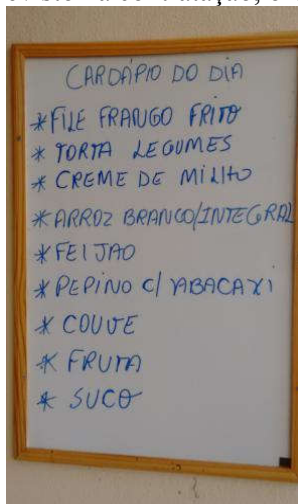 CARDÁPIO DO DIA
* FILE FRANGO FRITO
* TORTA LEGUMES
* CREME DE MILHO
* ARROZ BRANCO/INTEGRAL
* FEIJAO
* PEPINO C/ ABACAXI
* COUVE
* FRUTA
* SUCO